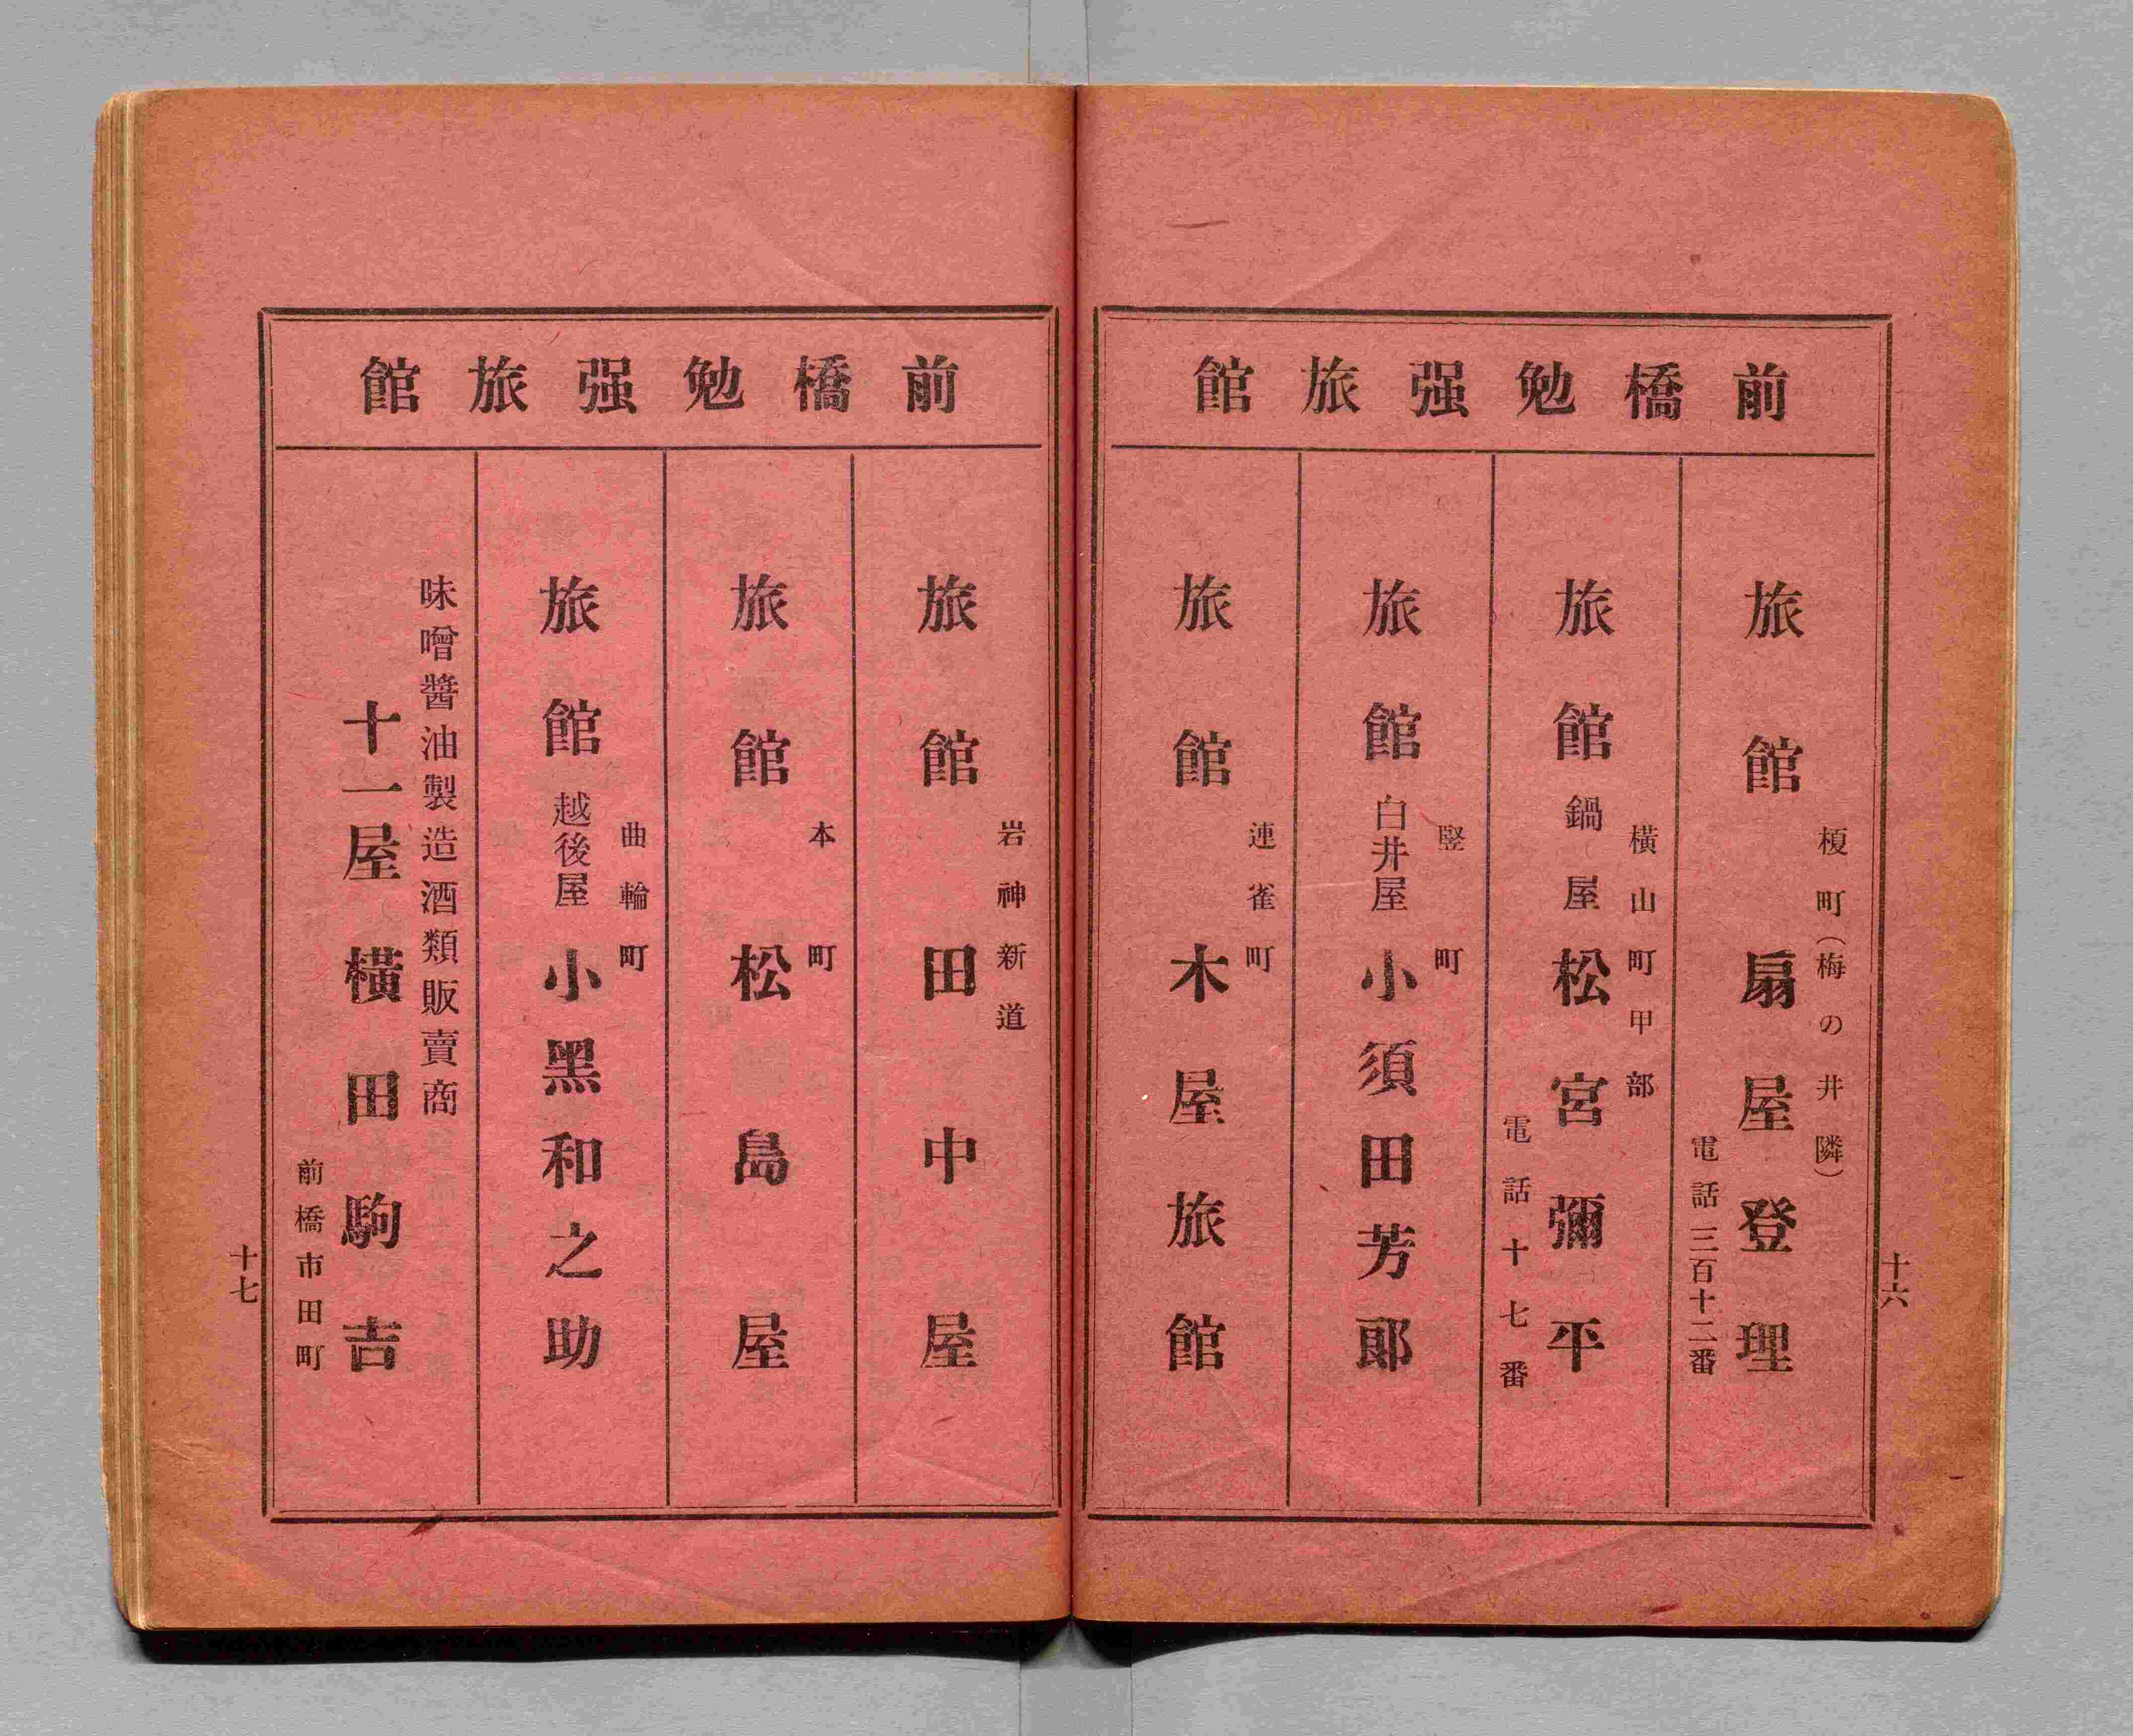 前橋勉强旅館
榎町(梅の井隣)
旅館 扇屋登理
電話三百十二番
横山町甲部
旅館 鍋屋 松宮彌平
電話十七番
竪町
旅館 白井屋 小須田芳郎
連雀町
旅館 木屋旅館
十六
前橋勉强旅館
岩神新道
旅館 田中屋
本町
旅館 松島屋
曲輪町
旅館 越後屋 小黑和之助
味噌醬油製造酒類販賣商
十一屋 橫田駒吉
前橋市田町
十七